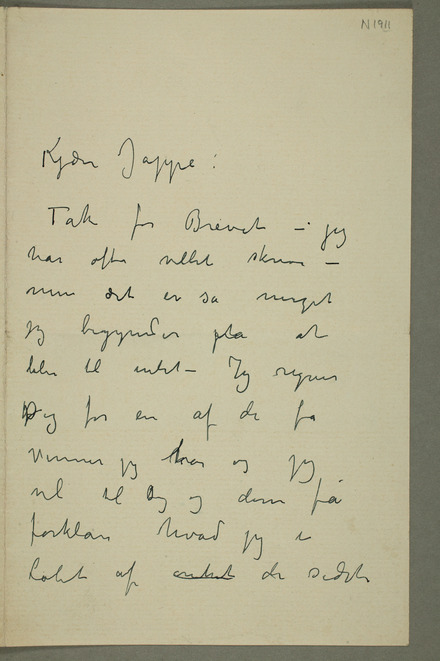 N 1911
Kjære Jappe:
Tak for Brevet – jeg
har ofte villet skrive –
men det er så meget
jeg begynder på at
blir til intet – Jeg regner
Dig for en af de få
Venner jeg har og jeg
vil til Dig og denne få
forklare hvad jeg i
Løbet af de sidste